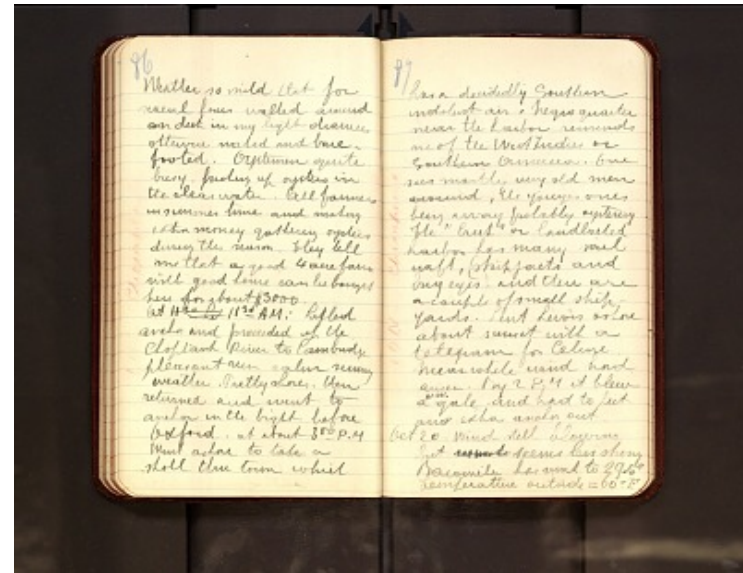 86
Weather so mild that for
several hours walked around
on deck in my light drawers
otherwise naked and bare-
footed. Oystermen quite
busy, fishing up oysters in
the clear water. All farmers
in summer time and making
extra money gathering oysters
during the season. They tell
me that a good 4 acre farm
with good house can be bought
here for about $3000
At 11 30 A.M. lifted
anchor and proceeded up the
Choptank River to Cambridge
pleasant run calm sunny
weather. Pretty shores. Then
returned and went to
anchor in the bight before
Oxford. at about 3 00 P.M
Went ashore to take a
stroll thru town which
87
has a decidedly Southern
indolent air. Negro quarter
near the harbor reminds
me of the West Indies or
Southern America. One
sees mostly very old men
around, the younger ones
being away probably oystering
The "Creek" or landlocked
harbor has many sail
craft, skipjacks and
bugeyes. and there are
a couple of small ship-
yards. Sent ashore
about sunset with a
telegram for Celine.
Meanwhile wind had
arisen. By 2 P.M it blew
a gale and had to put
an extra anchor out
Oct 20. Wind still blowing
but seems less strong
Barometer has sunk to
Temperature outside = 60° F